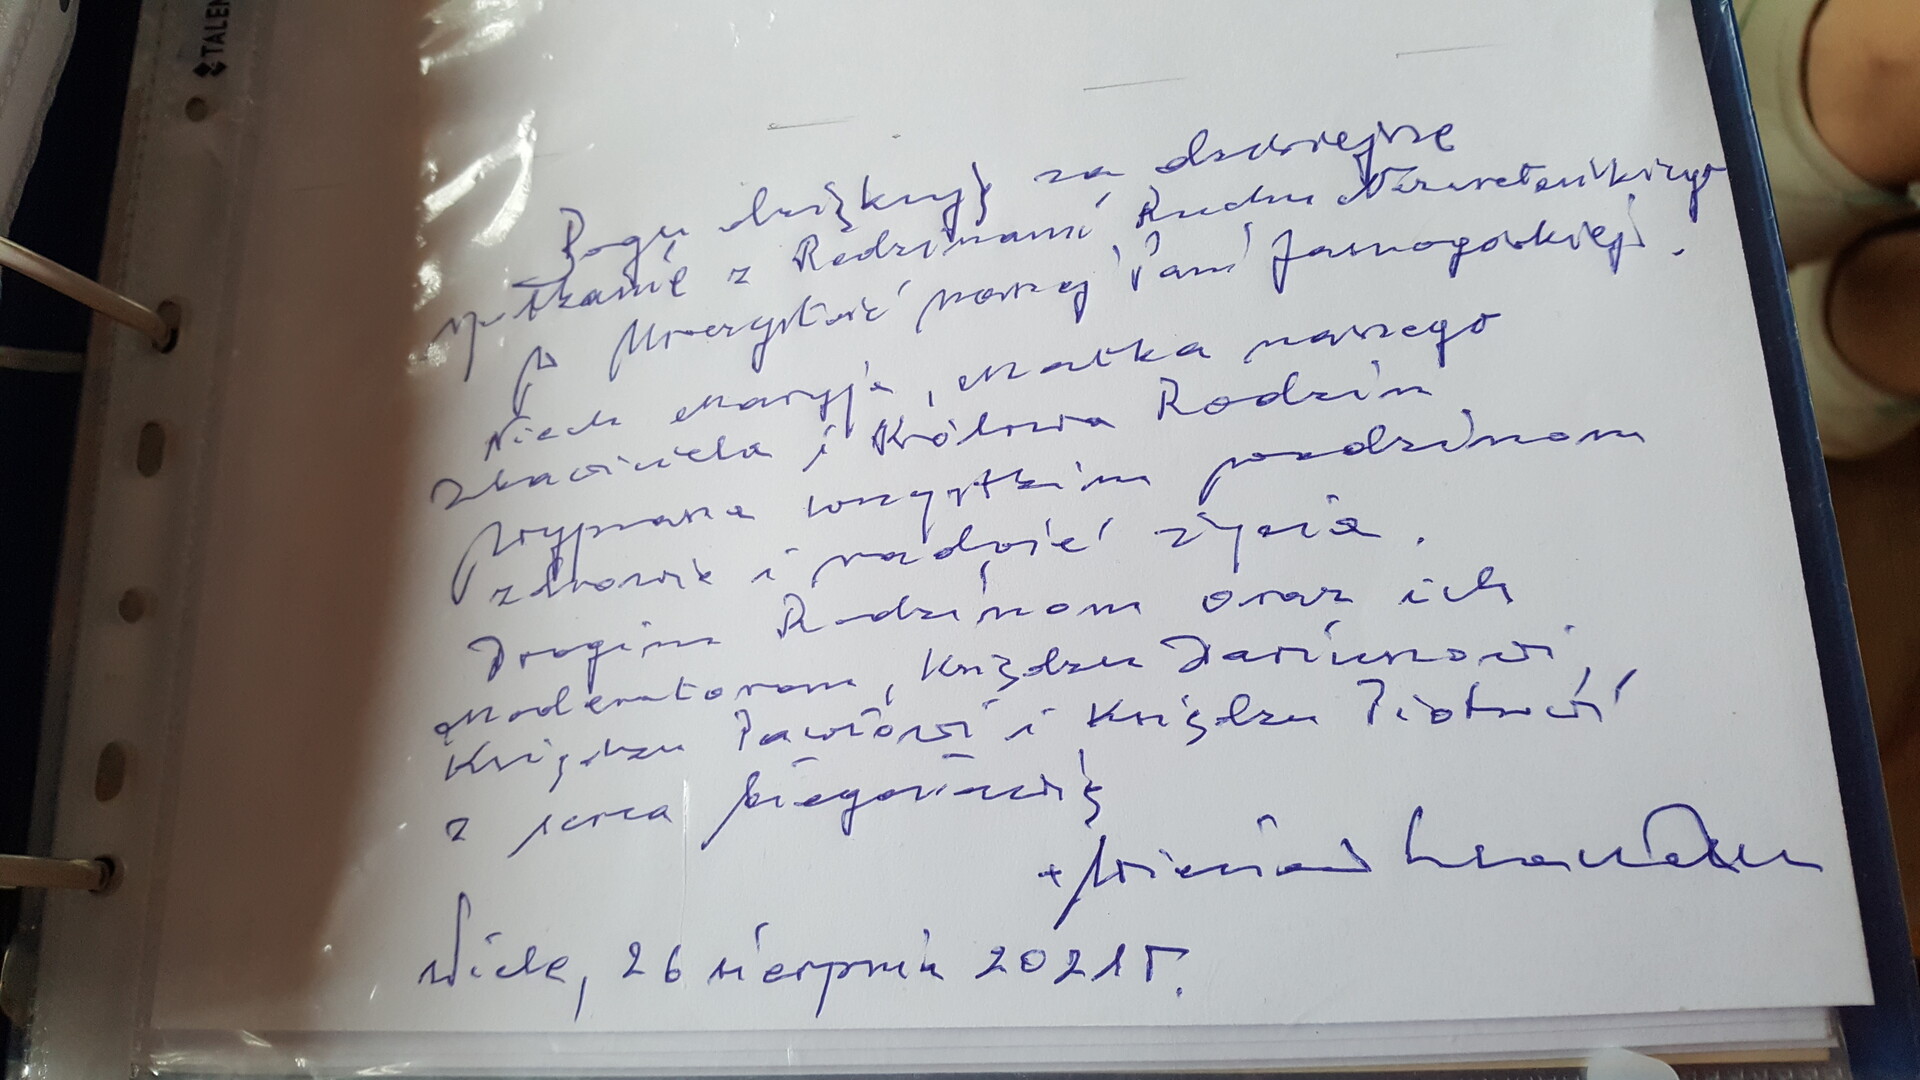 TALEN
Bogu dziękuję za dzisiejsze
spotkanie z Rodzinami Ruchu Nazaretańskiego
w Uroczystość naszej Pani Jasnogórskiej.
Niech Maryja, Matka naszego
Zbawiciela i Królowa Rodzin
wyprasza wszystkim rodzinom
zdrowie i radość życia.
Drogim Rodzinom oraz ich
Moderatorom, Księdzu Dariuszowi,
Księdzu Pawłowi i Księdzu Piotrowi
z serca błogosławię
+ Wiesław
Wiele, 26 sierpnia 2021 r.